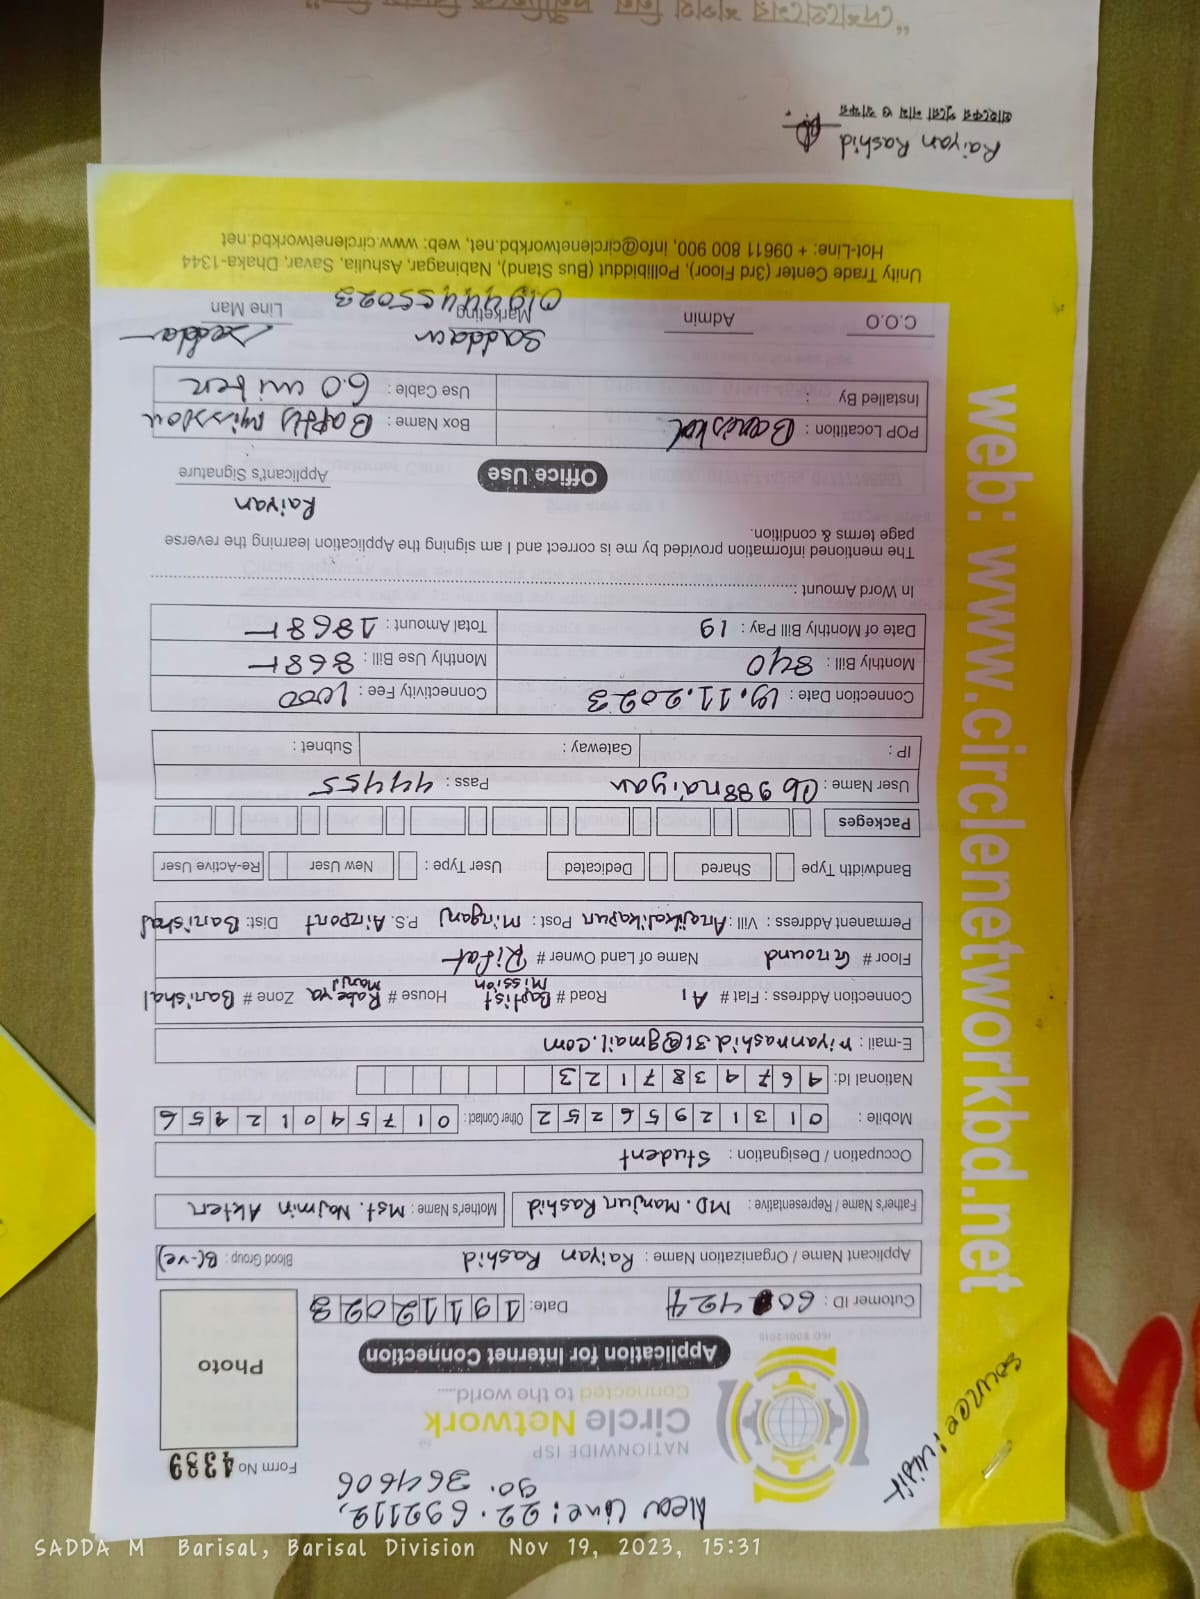 New Line: 22.692112,
90.364606
Form No 4389
NATIONWIDE ISP
Circle Network
Connected to the world.....
ISO 9001:2015
Application for Internet Connection
Photo
Source: visit
Cutomer ID : 60 424 Date: 19112023
Applicant Name / Organization Name : Raiyan Rashid Blood Group : B(-ve)
Father's Name / Representative : MD. Manjur Rashid Mother's Name : Mst. Najmin Akter
Occupation / Designation : Student
Mobile : 01312956252 Other Contact : 01754012156
National Id: 4674387123
E-mail : riyanrashid31@gmail.com
Connection Address : Flat # A1 Road # Baptist Mission House # Rabeya Manjil Zone # Barishal
Floor # Ground Name of Land Owner # Rifat
Permanent Address : Vill : Arajikalikapur Post : Mirganj P.S. Airport Dist: Barishal
Bandwidth Type Shared Dedicated User Type : New User Re-Active User
Packeges
User Name : Cb988raiyan Pass : 44455
IP : Gateway : Subnet :
Connection Date : 19.11.2023 Connectivity Fee : 1000
Monthly Bill : 840 Monthly Use Bill : 868
Date of Monthly Bill Pay : 19 Total Amount : 1868
In Word Amount :
The mentioned information provided by me is correct and I am signing the Application learning the reverse
page terms & condition.
Raiyan
Applicant's Signature
Office Use
POP Locatition : Barishal Box Name : Baptis mission
Installed By : Use Cable : 60 miter
Saddam
C.O.O Admin Marketing Line Man
01944455023
Unity Trade Center (3rd Floor), Pollibiddut (Bus Stand), Nabinagar, Ashulia, Savar, Dhaka-1344
Hot-Line: + 09611 800 900, info@circlenetworkbd.net, web: www.circlenetworkbd.net
web: www.circlenetworkbd.net
Raiyan Rashid
গ্রাহকের পুরো নাম ও স্বাক্ষর
SADDA M Barisal, Barisal Division Nov 19, 2023, 15:31